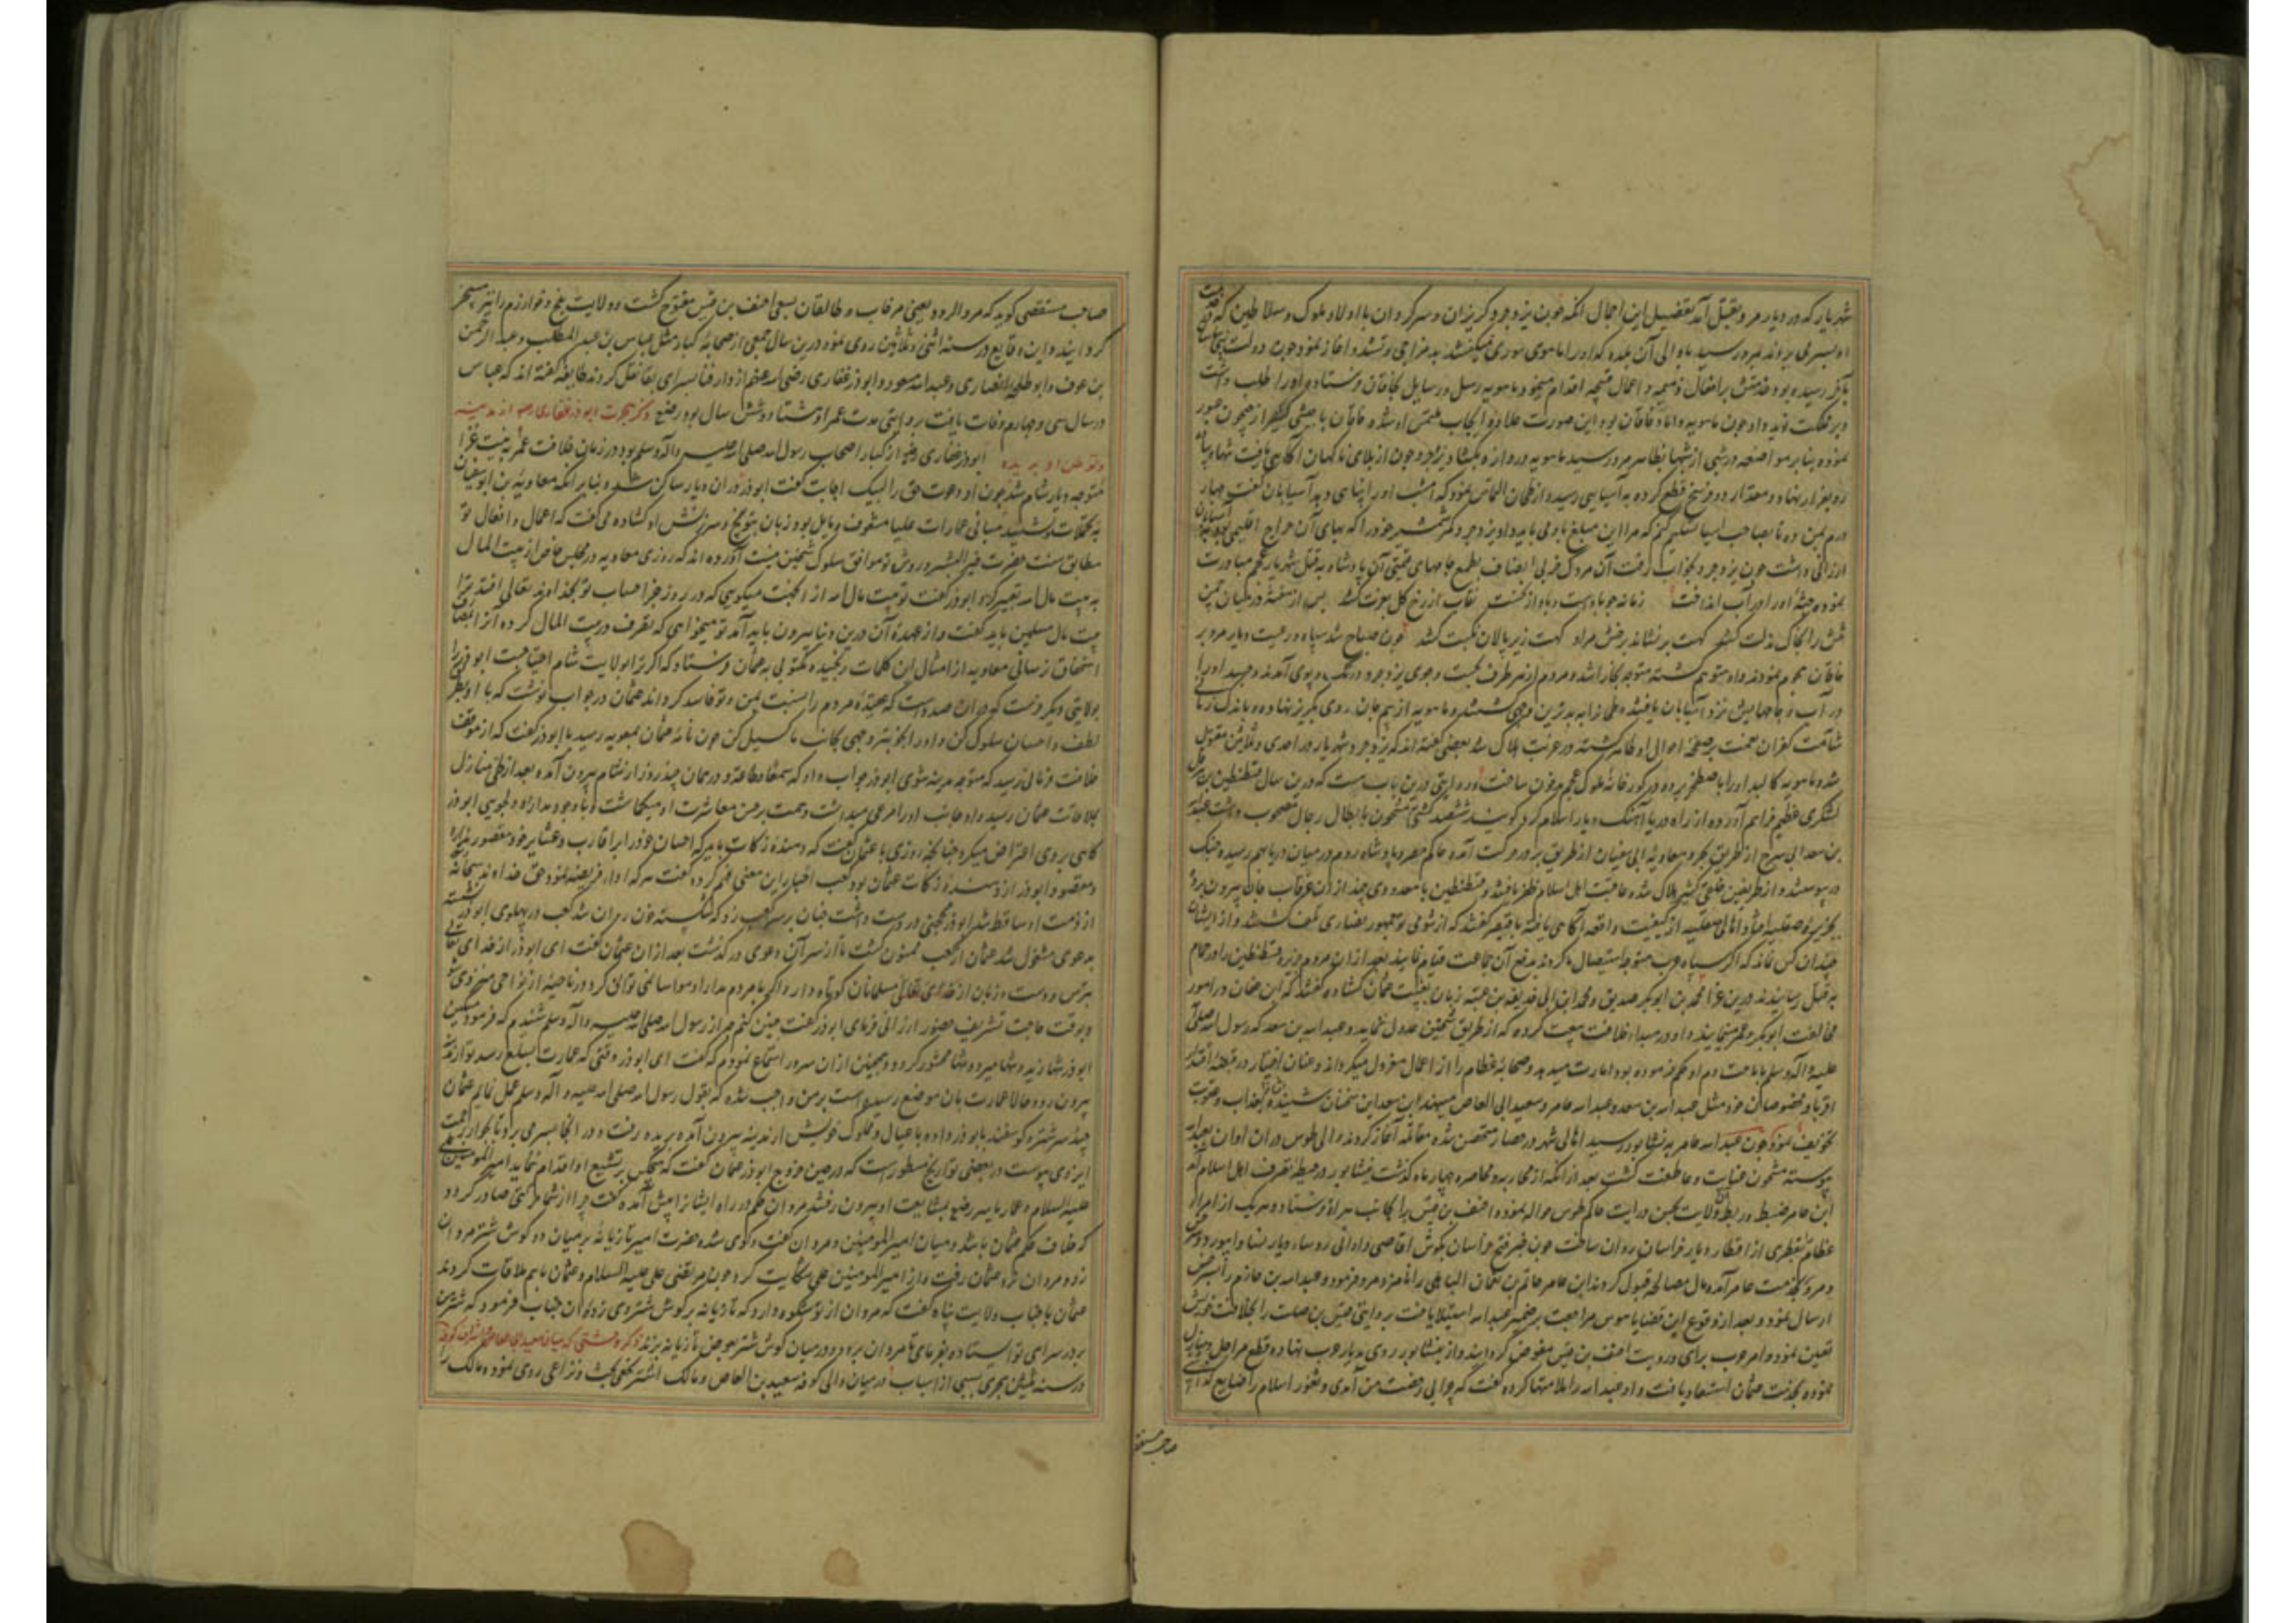 شهریار که در دیار مرو بقتل آمد تفصیل این اجمال آنکه چون یزدجرد گریزان و سرگردان با اولاد ملوک و سلاطین که در خدمت
او بسر می بردند بمرو رسید ماهوی سوری
بآخر رسیده بود افعال ذمیمه و اعمال قبیحه اقدام مینمود ماهویه رسل و رسایل بخاقان فرستاده او را طلب داشت
چون ماهویه داماد خاقان بود این صورت علاوه ایجاب ملتمس او شد و خاقان با جیشی کثیر از جیحون عبور
نموده بنابر مواضعه در شبی از شبها بظاهر مرو رسید ماهویه دروازه بگشاد یزدجرد چون از بلای ناگهان آگاهی یافت تنها و پیاده
رو بفرار نهاد و مقدار دو فرسخ قطع کرده به آسیایی رسید و از طحان التماس نمود که امشب او را پناهی دهد آسیابان گفت چهار
درم بمن ده تا بصاحب آسیا تسلیم کنم که مرا این مبلغ باو می باید داد یزدجرد کمر شمشیر خود را که بهای آن خراج اقلیمی بود بآسیابان
ارزانی داشت چون یزدجرد بخواب رفت آن مردک بی انصاف بطمع جامهای قیمتی آن پادشاه بقتل شهریار عجم مبادرت
نموده جثه او را در آب انداخت
چون صباح شد سپاه و رعیت دیار مرو بر
خاقان هجوم نمودند و او منهزم گشته متوجه بخارا شد و مردم از هر طرف بجست و جوی یزدجرد در تک و پوی آمدند و جسد او را
در آب و جامهایش نزد آسیابان یافتند طحان را به بدترین وجهی بکشتند و ماهویه از بیم جان روی بگریز نهاد و باندک زمانی
شآمت کفران نعمت بر صفحه احوال او ظاهر گشته در غربت هلاک شد بعضی گفته اند که یزدجرد شهریار در احدی و ثلثین مقتول
شد و ماهویه کالبد او را باصطخر برده در گورخانه ملوک عجم مدفون ساخت و روایتی درین باب هست که درین سال قسطنطین بن هرقل
لشکری عظیم فراهم آورده از راه دریا آهنگ دیار اسلام کرد گویند ششصد کشتی مشحون بابطال رجال مصحوب داشت عبدالله
بن سعد ابی سرح از طریق بحر و معاویه ابی سفیان از طریق بر در حرکت آمده حاکم مصر با پادشاه روم در میان دریا بهم رسیده جنگ
در پیوستند و از طرفین خلقی کثیر هلاک شده عاقبت اهل اسلام ظفر یافتند و قسطنطین با معدودی چند از آن غرقاب جان بیرون برد
بجزیره صقلیه افتاد اهالی صقلیه از کیفیت واقعه آگاهی یافته با قیصر گفتند که از شومی تو جمهور نصاری تلف گشتند و از ایشان
چندان کس نماند که اگر سپاه عرب متوجه استیصال ما گردند بدفع آن جماعت قیام نمایند بعد از آن مردم جزیره قسطنطین را در حمام
بقتل رسانیدند درین غزا محمد بن ابوبکر صدیق و محمد بن ابی حذیفه بن عتبه زبان بغیبت عثمان گشاده گفتند که ابن عفان در امور
مخالفت ابوبکر و عمر مینماید و او در مبداء خلافت بیعت کرده که از طریق شیخین عدول ننماید و عبدالله بن سعد که رسول الله صلی الله
علیه و آله وسلم باباحت دم او حکم فرموده بود امارت میدهد و صحابه عظام را از اعمال معزول میگرداند و عنان اختیار در قبضه اقتدار
اقربا و مخصوصان خود مثل عبدالله بن سعد و عبدالله عامر و سعید ابی العاص مینهد ابن سعد این سخنان شنیده بعذاب و عقوبت
تخویف نمود چون عبدالله عامر به نیشابور رسید اهالی شهر در حصار متحصن شده مقاتله آغاز کردند والی طوس در آن اوان بعبدالله
پیوسته مشحون عنایت و عاطفت گشت بعد از آنکه از محاربه و محاصره چهار ماه گذشت نیشابور در حیطه تصرف اهل اسلام آمد
ابن عامر ضبط و ربط ولایت بحسن درایت حاکم طوس حواله نموده احنف بن قیس را بجانب هراة فرستاد و هر یک از امراء
عظام بقطری از اقطار دیار خراسان روان ساخت چون خبر فتح خراسان بگوش اقاصی و ادانی رسید دیار نسا و ابیورد و سرخس
و مرو بخدمت عامر آمده مال مصالحه قبول کردند ابن عامر حاتم بن نعمان الباهلی را نامزد مرو فرمود و عبدالله بن خازم را بسرخس
ارسال نمود و بعد از وقوع این قضایا هوس مراجعت بر ضمیر عبدالله استیلا یافت بروایتی قیس بن صلت را بخلافت خویش
تعیین نمود و امر حرب برای و رویت احنف بن قیس مفوض گردانید و از نیشابور روی بدیار عرب نهاده قطع مراحل و منازل
نموده بخدمت عثمان استسعاد یافت و او عبدالله را ملامتها کرده گفت که چرا بی رخصت من آمدی و ثغور اسلام را ضایع گذاشتی
صاحب مستقصی
صاحب مستقصی گوید که مرو الرود یعنی مرغاب و طالقان بسعی احنف بن قیس مفتوح گشت و ولایت بلخ و خوارزم را نیز مسخر
گردانیدند و این وقایع در سنه اثنی و ثلثین روی نمود درین سال جمعی از صحابه کبار مثل عباس بن عبدالمطلب و عبدالرحمن
بن عوف و ابو طلحه انصاری و عبدالله مسعود و ابوذر غفاری رضی الله عنهم از دار فنا بسرای بقا نقل کردند طایفه گفته اند که عباس
در سال سی و چهارم وفات یافت بروایتی مدت عمر او هشتاد و شش سال بود رضع ذکر هجرت ابوذر غفاری رضه از مدینه
و توطن او بربده ابوذر غفاری رضه از کبار اصحاب رسول الله صلی الله علیه وآله وسلم بود در زمان خلافت عمر به نیت غزا
متوجه دیار شام شد چون او دعوت حق را لبیک اجابت گفت ابوذر در آن دیار ساکن شد و بنابر آنکه معاویه بن ابوسفیان
به تجملات و تشیید مبانی عمارات علیا مشعوف و مایل بود زبان بتوبیخ و سرزنش او گشاده می گفت که اعمال و افعال تو
مطابق سنت حضرت خیر البشر و روش تو موافق سلوک شیخین نیست آورده اند که روزی معاویه در مجلس خاص از بیت المال
به بیت مال الله تعبیر کرد ابوذر گفت تو بیت مال الله از آن جهت میگویی که در روز جزا حساب تو بخداوند تعالی افتد ترا
بیت مال مسلمین باید گفت و از عهده آن درین دنیا بیرون باید آمد تو میخواهی که تصرف در بیت المال کرده آنرا بغیر
استحقاق رسانی معاویه از امثال این کلمات رنجیده مکتوبی به عثمان فرستاد که اگر ترا بولایت شام احتیاجست ابوذر را
بولایتی دیگر فرست که در آن صدد است که عقیده مردم را نسبت بمن و تو فاسد گرداند عثمان در جواب نوشت که با او بطریق
لطف و احسان سلوک کن و او را بخوبتر وجهی بجانب ما گسیل کن چون نامه عثمان بمعویه رسید با ابوذر گفت که از موقف
خلافت فرمانی رسید که متوجه مدینه شوی ابوذر جواب داد که سمعا و طاعة و در همان چند روز از شام بیرون آمده بعد از طی منازل
بملاقات عثمان رسید و او جانب او را مرعی میداشت و همت بر حسن معاشرت او میگماشت با وجود مدارا و دلجویی ابوذر
گاهی بر وی اعتراض میکرد چنانچه روزی با عثمان گفت که دهنده زکات باید که احسان خود را بر اقارب و عشایر خود مقصور ندارد
و مقصود ابوذر از دهنده زکات عثمان بود کعب احبار این معنی فهم کرده گفت هر که اداء فریضه نمود حق خداوند سبحانه
از ذمت او ساقط شد ابوذر محجنی در دست داشت چنان بر سر کعب زد که شکسته خون روان شد کعب در پهلوی ابوذر نشسته
بدعوی مشغول شد عثمان از کعب ممنون گشت تا از سر آن دعوی در گذشت بعد از آن عثمان گفت ای ابوذر از خدای تعالی
بترس و دست و زبان از مسلمانان کوتاه دار و اگر با مردم مدارا و مواسا نمی توانی کرد در ناحیه از نواحی منزوی شو
و بوقت حاجت تشریف حضور ارزانی فرمای ابوذر گفت چنین کنم چه از رسول الله صلی الله علیه وآله وسلم شنیدم که فرمود مسکین
ابوذر تنها زید و تنها میرد و تنها محشور گردد و همچنین از آن سرور استماع نمودم که گفت ای ابوذر وقتی که عمارت بسلع رسد تو از مدینه
بیرون رو و حالا عمارت بآن موضع رسیده است بر من واجب شده که بقول رسول الله صلی الله علیه و آله وسلم عمل نمایم عثمان
چند سر شتر و گوسفند بابوذر داده با عیال و مملوک خویش از مدینه بیرون آمده بربده رفت و در آنجا بسر می برد تا بجوار رحمت
ایزدی پیوست در بعضی تواریخ مسطور است که در حین خروج ابوذر عثمان گفت که هیچکس بر تشییع او اقدام ننماید امیرالمومنین علی
علیه السلام و عمار یاسر رضع بمشایعت او بیرون رفتند مروان حکم در راه ایشانرا پیش آمده گفت چرا از شما حرکتی صادر گردد
که خلاف حکم عثمان باشد و میان امیرالمومنین و مروان گفت و گوی شده حضرت امیر تازیانه بر میان دو گوش شتر مروان
زد و مروان نزد عثمان رفت و از امیرالمومنین علی شکایت کرد چون مرتضی علی علیه السلام و عثمان با هم ملاقات کردند
عثمان با جناب ولایت پناه گفت که مروان از تو شکوه دارد که تازیانه بر گوش شتر وی زده آن جناب فرمود که شتر من
بر در سرای تو ایستاده بفرمای تا مروان برود و در میان گوش شتر بعوض تازیانه بزند
در سنه ثلثین هجری بسببی از اسباب در میان والی کوفه سعید بن العاص و مالک اشتر نخعی بحث و نزاعی روی نمود و مالک